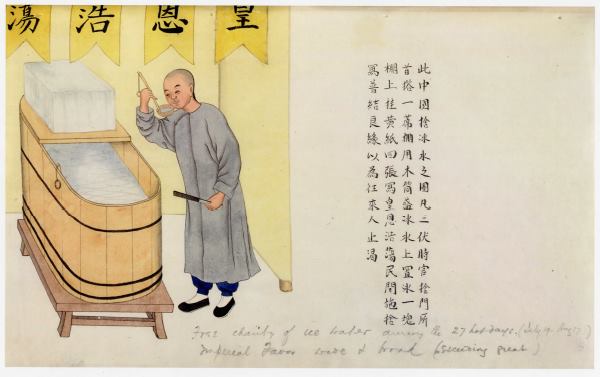 皇恩浩蕩
此中國捨冰水之圖凡三伏時官捨門所
首搭一蓆棚用木筒盛冰水上置冰一塊
棚上挂黄紙四張寫皇恩浩蕩民間施捨
寫普結良緣以為往來人止渴
Free charity of ice water during the 27 hot days. (July 19 Aug
Imperial Favor wide & broad